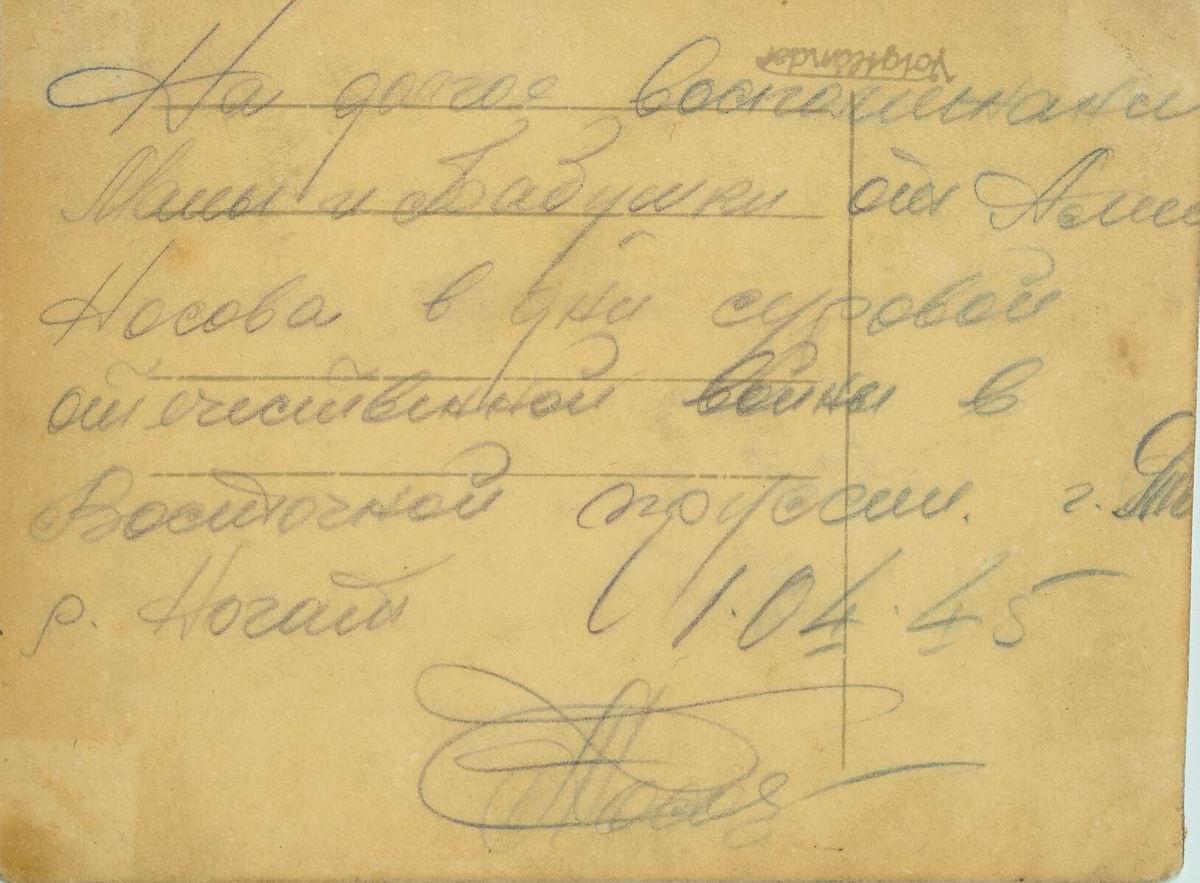 Voigtländer
На долгое воспоминани
Мамы и Бабушки от
Носова в дни суровой
отечественной войны в
Восточной пруссии. г.
р. Ногат 1.04.45